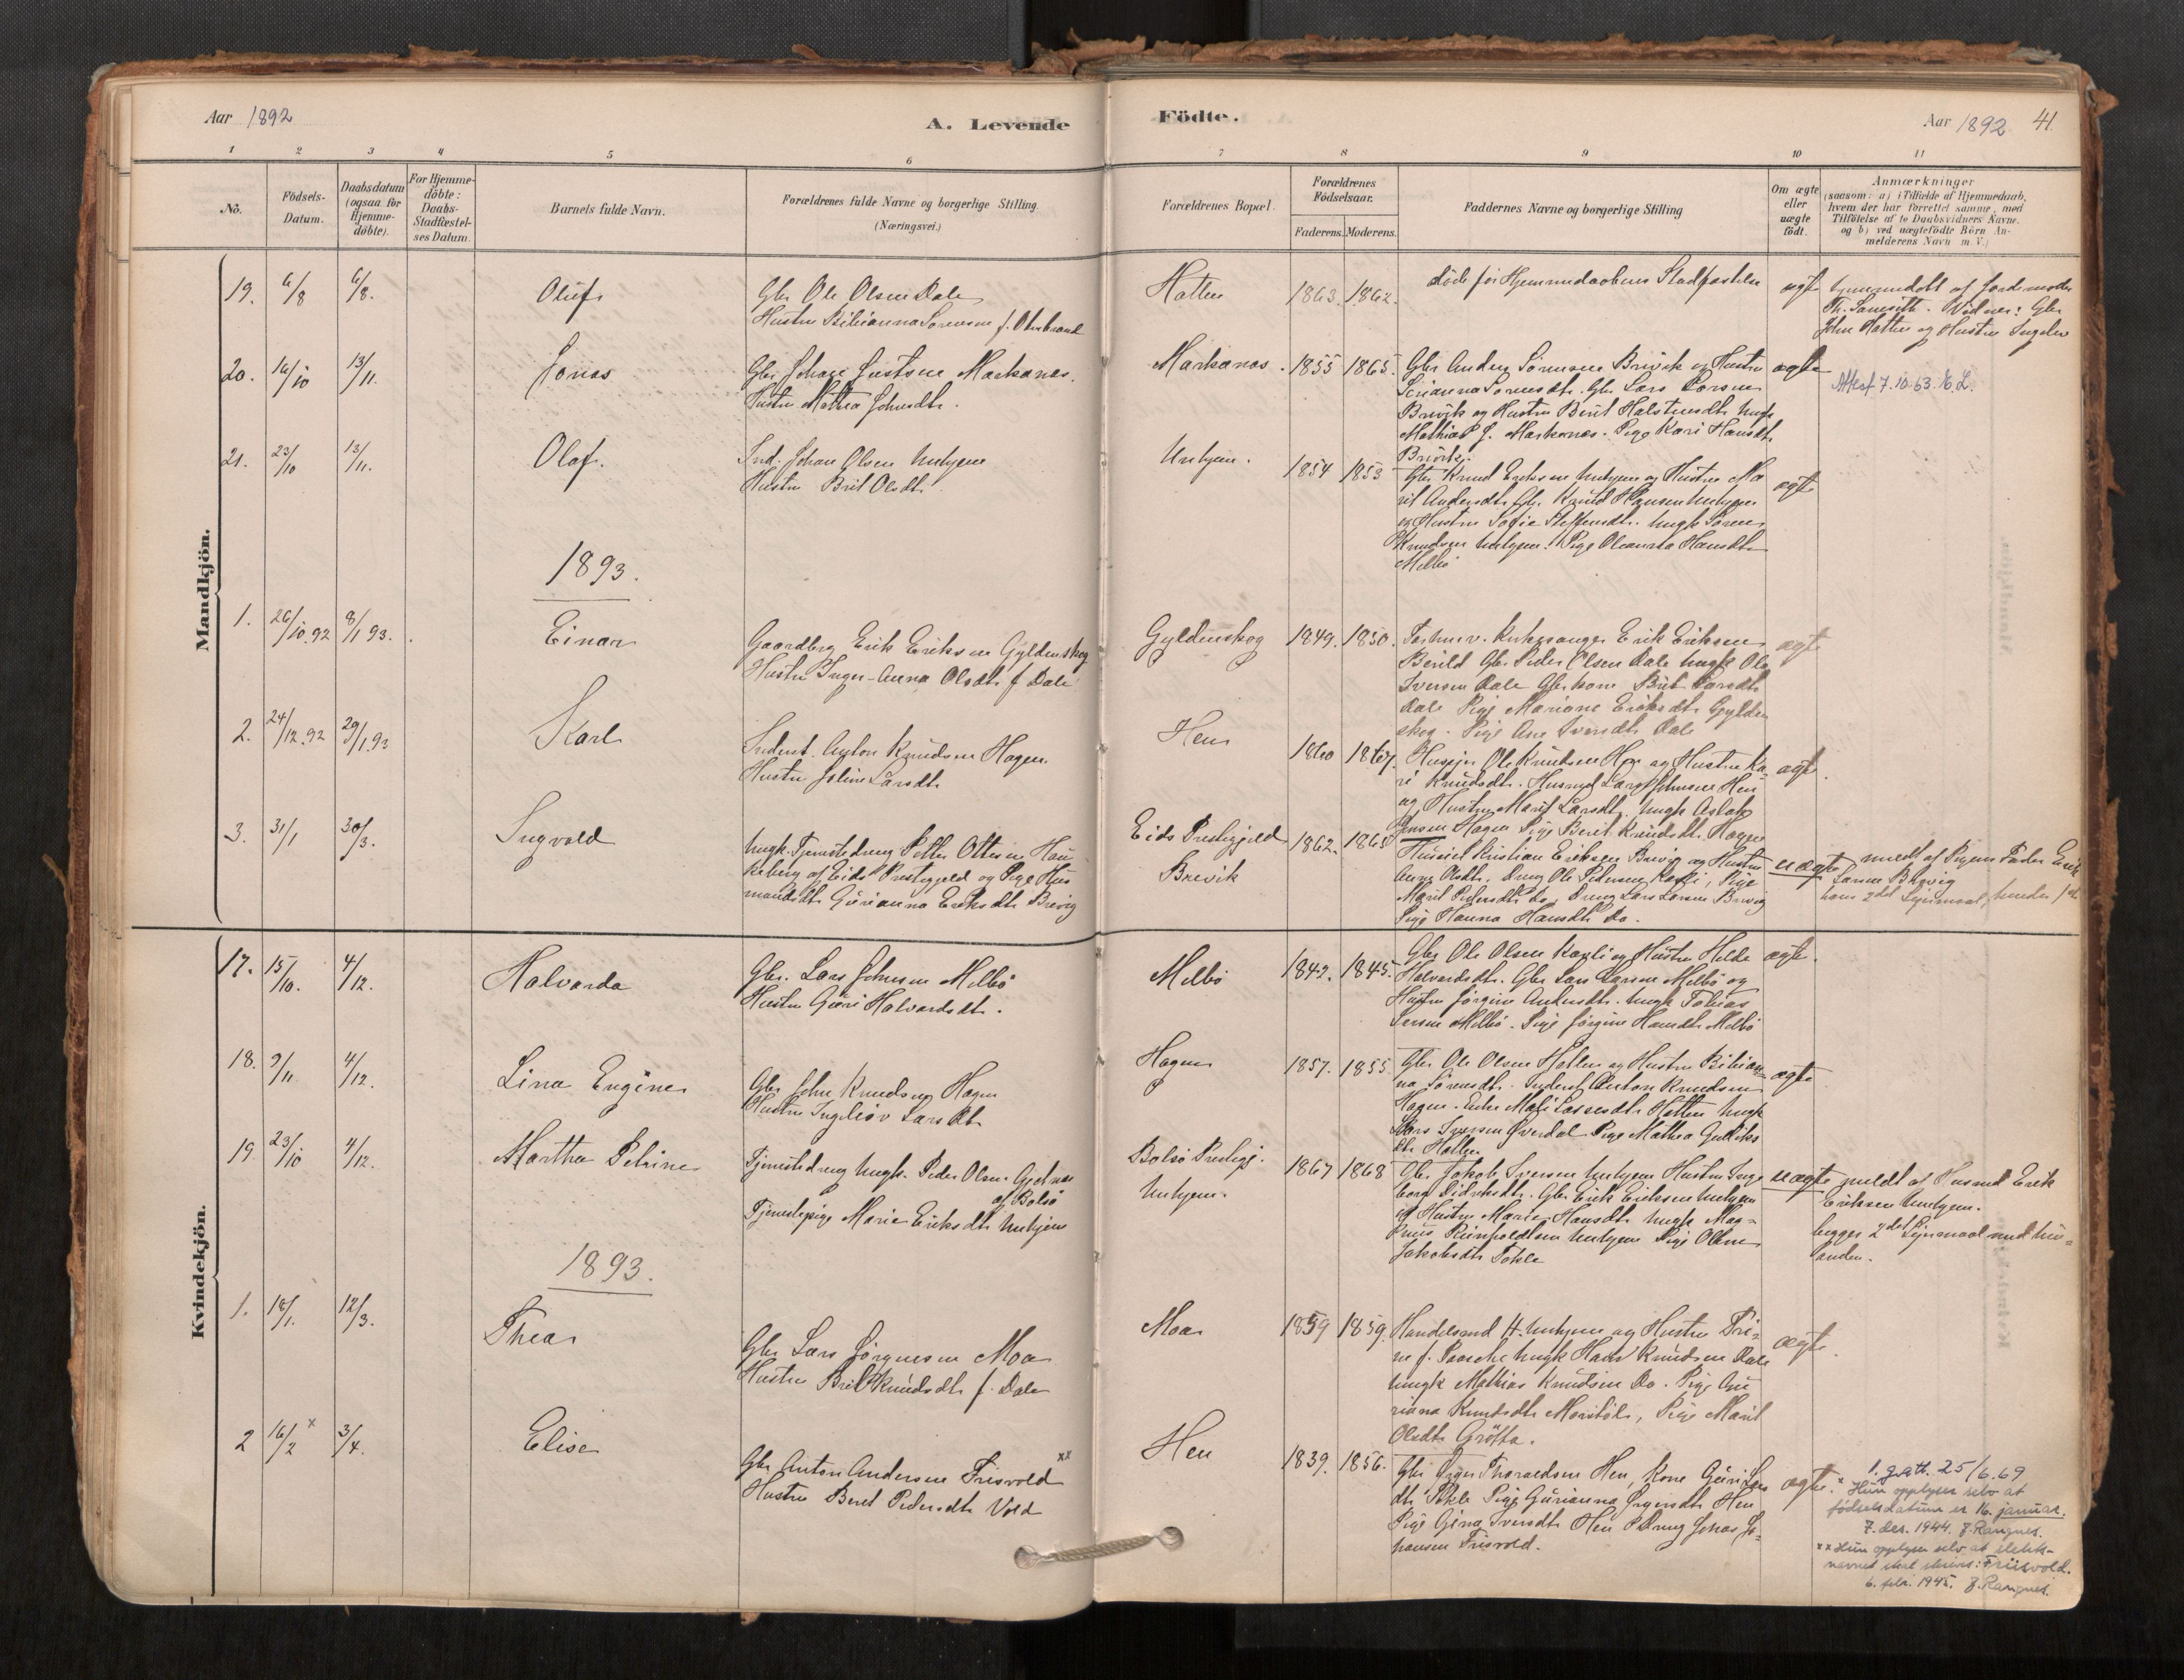 Aar 1892
A. Levende
Födte.
Aar 1892
41.
1 2 3 4 5 6 7 8 9 10 11
No.
Födsels-
Datum.
Daabsdatum
(ogsaa for
Hjemme-
döbte).
For Hjemme-
döbte:
Daabs-
Stadfæstel-
ses Datum.
Barnets fulde Navn.
Forældrenes fulde Navne og borgerlige Stilling
(Næringsvei.)
Forældrenes Bopæl.
Forældrenes
Födselsaar.
Faderens. Moderens.
Faddernes Navne og borgerlige Stilling
Om ægte
eller
uægte
födt.
Anmærkninger
(saasom: a) i Tilfælde af Hjemmedaab,
hvem der har forrettet samme, med
Tilföielse af to Daabsvidners Navne.
og b) ved uægtefödte Börn An-
melderens Navn m. V.)
Mandkjön.
19. 6/8 6/8. Oluf
Gbr Ole Olsen Dale
Hustru Bilianna Sørensen f.
Hatten 1863. 1862.
døde før Hjemmedaabens Stadfæstelse
ægte
hjemmedøbt af Jordemoder
Th. Vidner: Gbr
John Hatten og Hustru Ingelev
20. 16/10 13/11. Jonas
Gbr Johan Justsen Markanæs.
Hustru Mathea Johnsdtr.
Markanæs. 1855 1865.
Gbr Anders Sørensen Brevik og Hustru
Serianna Sørensdtr. Gbr Lars Larsen
Brevik og Hustru Berit Halstensdtr Ungk
Mathias J. Markanæs. Pige Kari Hansdtr
Brevik.
ægte
Attest 7.10.63. E.L.
21. 23/10 13/11. Olaf.
Ind. Johan Olsen Unhjem
Hustru Brit Olsdtr
Unhjem. 1854 1853
Gbr Knud Eriksen Unhjem og Hustru Ma
rit Andersdtr. Gbr. Knud Hansen Unhjem
og Hustru Sofie Steffensdtr. Ungk Søren
Knudsen Unhjem. Pige Oleanna Hansdtr
Melbö
ægte
1893.
1. 26/10.92 8/1 93. Einar
Gaardbrg Erik Eriksen Gyldenskog
Hustru Inger-Anna Olsdtr f. Dale
Gyldenskog 1849. 1850.
Kirkesanger Erik Eriksen
Gbr Peder Olsen Dale Ungk Ole
Iversen Dale Gbrkone Brit Larsdtr
Dale Pige Mariane Eriksdtr Gylden
skog. Pige Ane Iversdtr Dale
ægte
2. 24/12.92 29/1.93 Karl
Inderst. Anton Knudsen Hagen.
Hustru Joline Larsdtr
Hen 1860 1867.
Ole Knudsen og Hustru Ka-
ri Knudsdtr. Husmd Lars Johnsen Hen
og Hustru Marit Larsdtr. Ungk Aslak
Jensen Hagen Pige Berit Knudsdtr Hagen
ægte.
3. 31/1 30/3. Ingvald
Ungk. Tjenstedreng Petter Ottesen Hau
keberg af Eids Prestegjeld og Pige Hus
mandsdtr Gurianna Eriksdtr Brevig
Eids Prestegjeld
Brevik
1862. 1865
Kristian Eriksen Brevig og Hustru
Anna Olsdtr. Dreng Ole Pedersen Kavli, Pige
Marit Pedersdtr Do. Dreng Lars Larsen Brevig
Pige Hanna Hansdtr Do.
uægte
meldt af Pigens Fader Erik
Larsen Brevig
hans 2det Leiermaal, hendes 1ste
Kvindekjön.
17. 15/10. 4/12. Halvarda
Gbr. Lars Johnsen Melbö
Hustru Guri Halvardsdtr.
Melbö 1842. 1845.
Gbr Ole Olsen Kavli og Hustru Helde
Halvardsdtr. Gbr Lars Larsen Melbö og
Hustru Jörgine Andersdtr. Ungk Tobias
Larsen Melbö. Pige Jörgine Hansdtr Melbö
ægte.
18. 9/11 4/12. Lina Engine
Gbr John Knudsen Hagen
Hustru Ingeleiv Larsdtr
Hagen 1857. 1855.
Gbr Ole Olsen Hatten og Hustru Bilian-
na Sørensdtr. Inderst Anton Knudsen
Hagen. Enke Mali Lassesdtr Hatten Ungk
Lars Iversen Øverdal Pige Mathea Gulliks
dtr Hatten
ægte
19. 23/10 4/12. Martha Petrine
Tjenstedreng Ungk. Peder Olsen Gjelnæs
af Bolsö
Tjenestepige Marie Eriksdtr Unhjem
Bolsö Prestegj.
Unhjem.
1867 1868
Gbr Jakob Iversen Unhjem Hustru Inge
borg Didriksdtr. Gbr Erik Eriksen Unhjem
og Hustru Marie Hansdtr Ungk Mag-
nus Reinholdtsen Unhjem Pige Oline
Jakobsdtr Tokle
uægte
meldt af Husmd Erik
Eriksen Unhjem.
begges 2det Lejermaal med hin-
anden.
1893.
1. 18/1. 12/3. Thea
Gbr Lars Jörgensen Moa
Hustru Brit Knudsdtr f. Dale
Moa 1859 1859.
Handelsmd H. Unhjem og Hustru Tri-
ne f. Paasche Ungk Hans Knudsen Dale
Ungk Mathias Knudsen Do. Pige Gu
rianna Knudsdtr Marstöl, Pige Marit
Olsdtr Grötta.
ægte.
2 16/2 x 3/4. Elise
Gbr Anton Andersen Frisvold xx
Hustru Beret Pedersdtr Vold
Hen 1839. 1856.
Gbr Ørger Thoraldsen Hen, Kone Guri Lars
dtr Tokle Pige Gurianna Ørgersdtr Hen
Pige Gina Iversdtr Hen Dreng Johas Jo-
hansen Frisvold.
ægte.
1. g. att. 25/6.69
x Hun opplyser selv at
fødselsdatum er 16. januar.
7. des. 1944. J. Rangnes.
xx Hun opplyser selv at slekts-
navnet skal skrives: Friisvold.
6. febr. 1945. J. Rangnes.